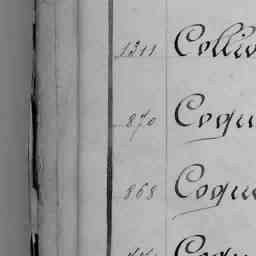 1311 Colli
870 Coqu
868 Coque
Coqu